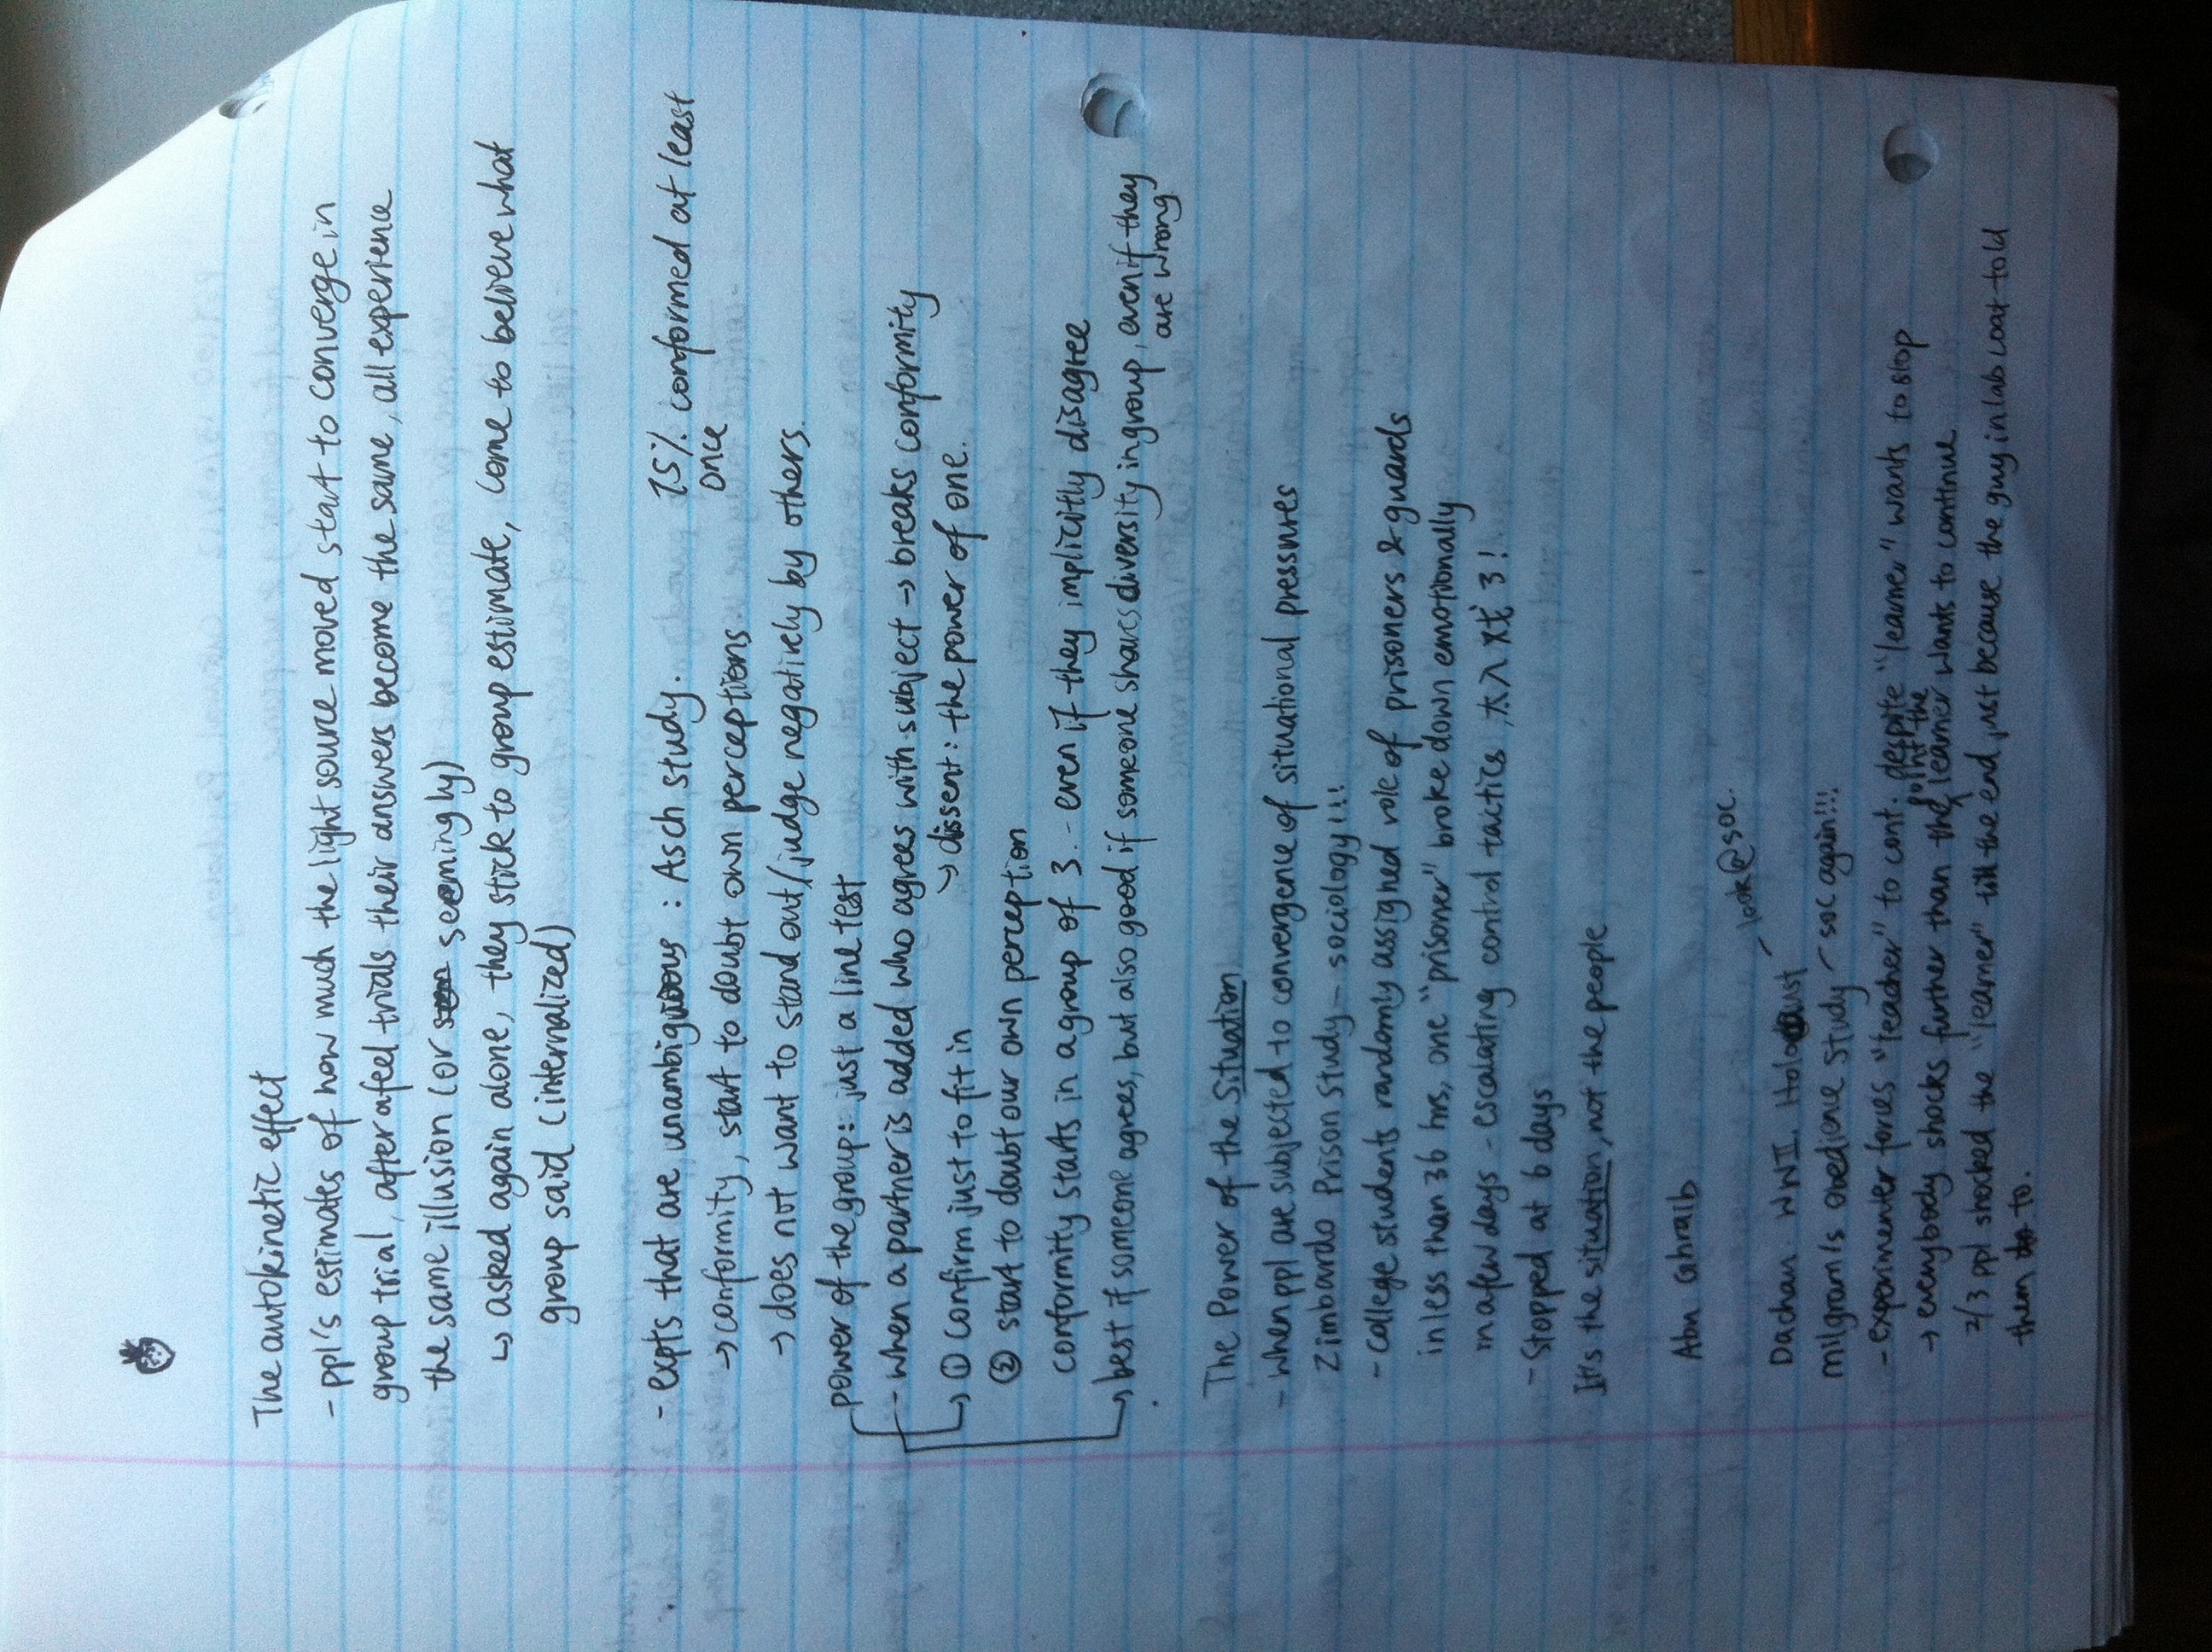 The autokinetic effect
- ppl's estimates of how much the light source moved start to converge in
group trial, after a feel trials their answers become the same, all experience
the same illusion (or seemingly)
↳ asked again alone, they stick to group estimate, come to believe what
group said (internalized)
- expts that are unambiguous : Asch study. 75% conformed at least
once
→ conformity, start to doubt own perceptions
→ does not want to stand out/judge negatively by others.
power of the group: just a line test
- when a partner is added who agrees with subject → breaks conformity
↳ ① confirm just to fit in → dissent: the power of one.
② start to doubt our own perception
conformity starts in a group of 3 - even if they implicitly disagree
↳ best if someone agrees, but also good if someone shares diversity in group, even if they
are wrong
The Power of the Situation
- when ppl are subjected to convergence of situational pressures
Zimbardo Prison Study - sociology!!!
- college students randomly assigned role of prisoners & guards
in less than 36 hrs, one "prisoner" broke down emotionally
in a few days - escalating control tactics, 太入戏了!
- Stopped at 6 days
It's the situation, not the people
Abu Ghraib
look@soc.
Dachau WWII. Holocaust
milgram's obedience study - soc again!!!
- experimenter forces "teacher" to cont. despite "learner" wants to stop
→ everybody shocks further than the point the learner wants to continue
2/3 ppl shocked the "learner" till the end, just because the guy in lab coat told
them to.